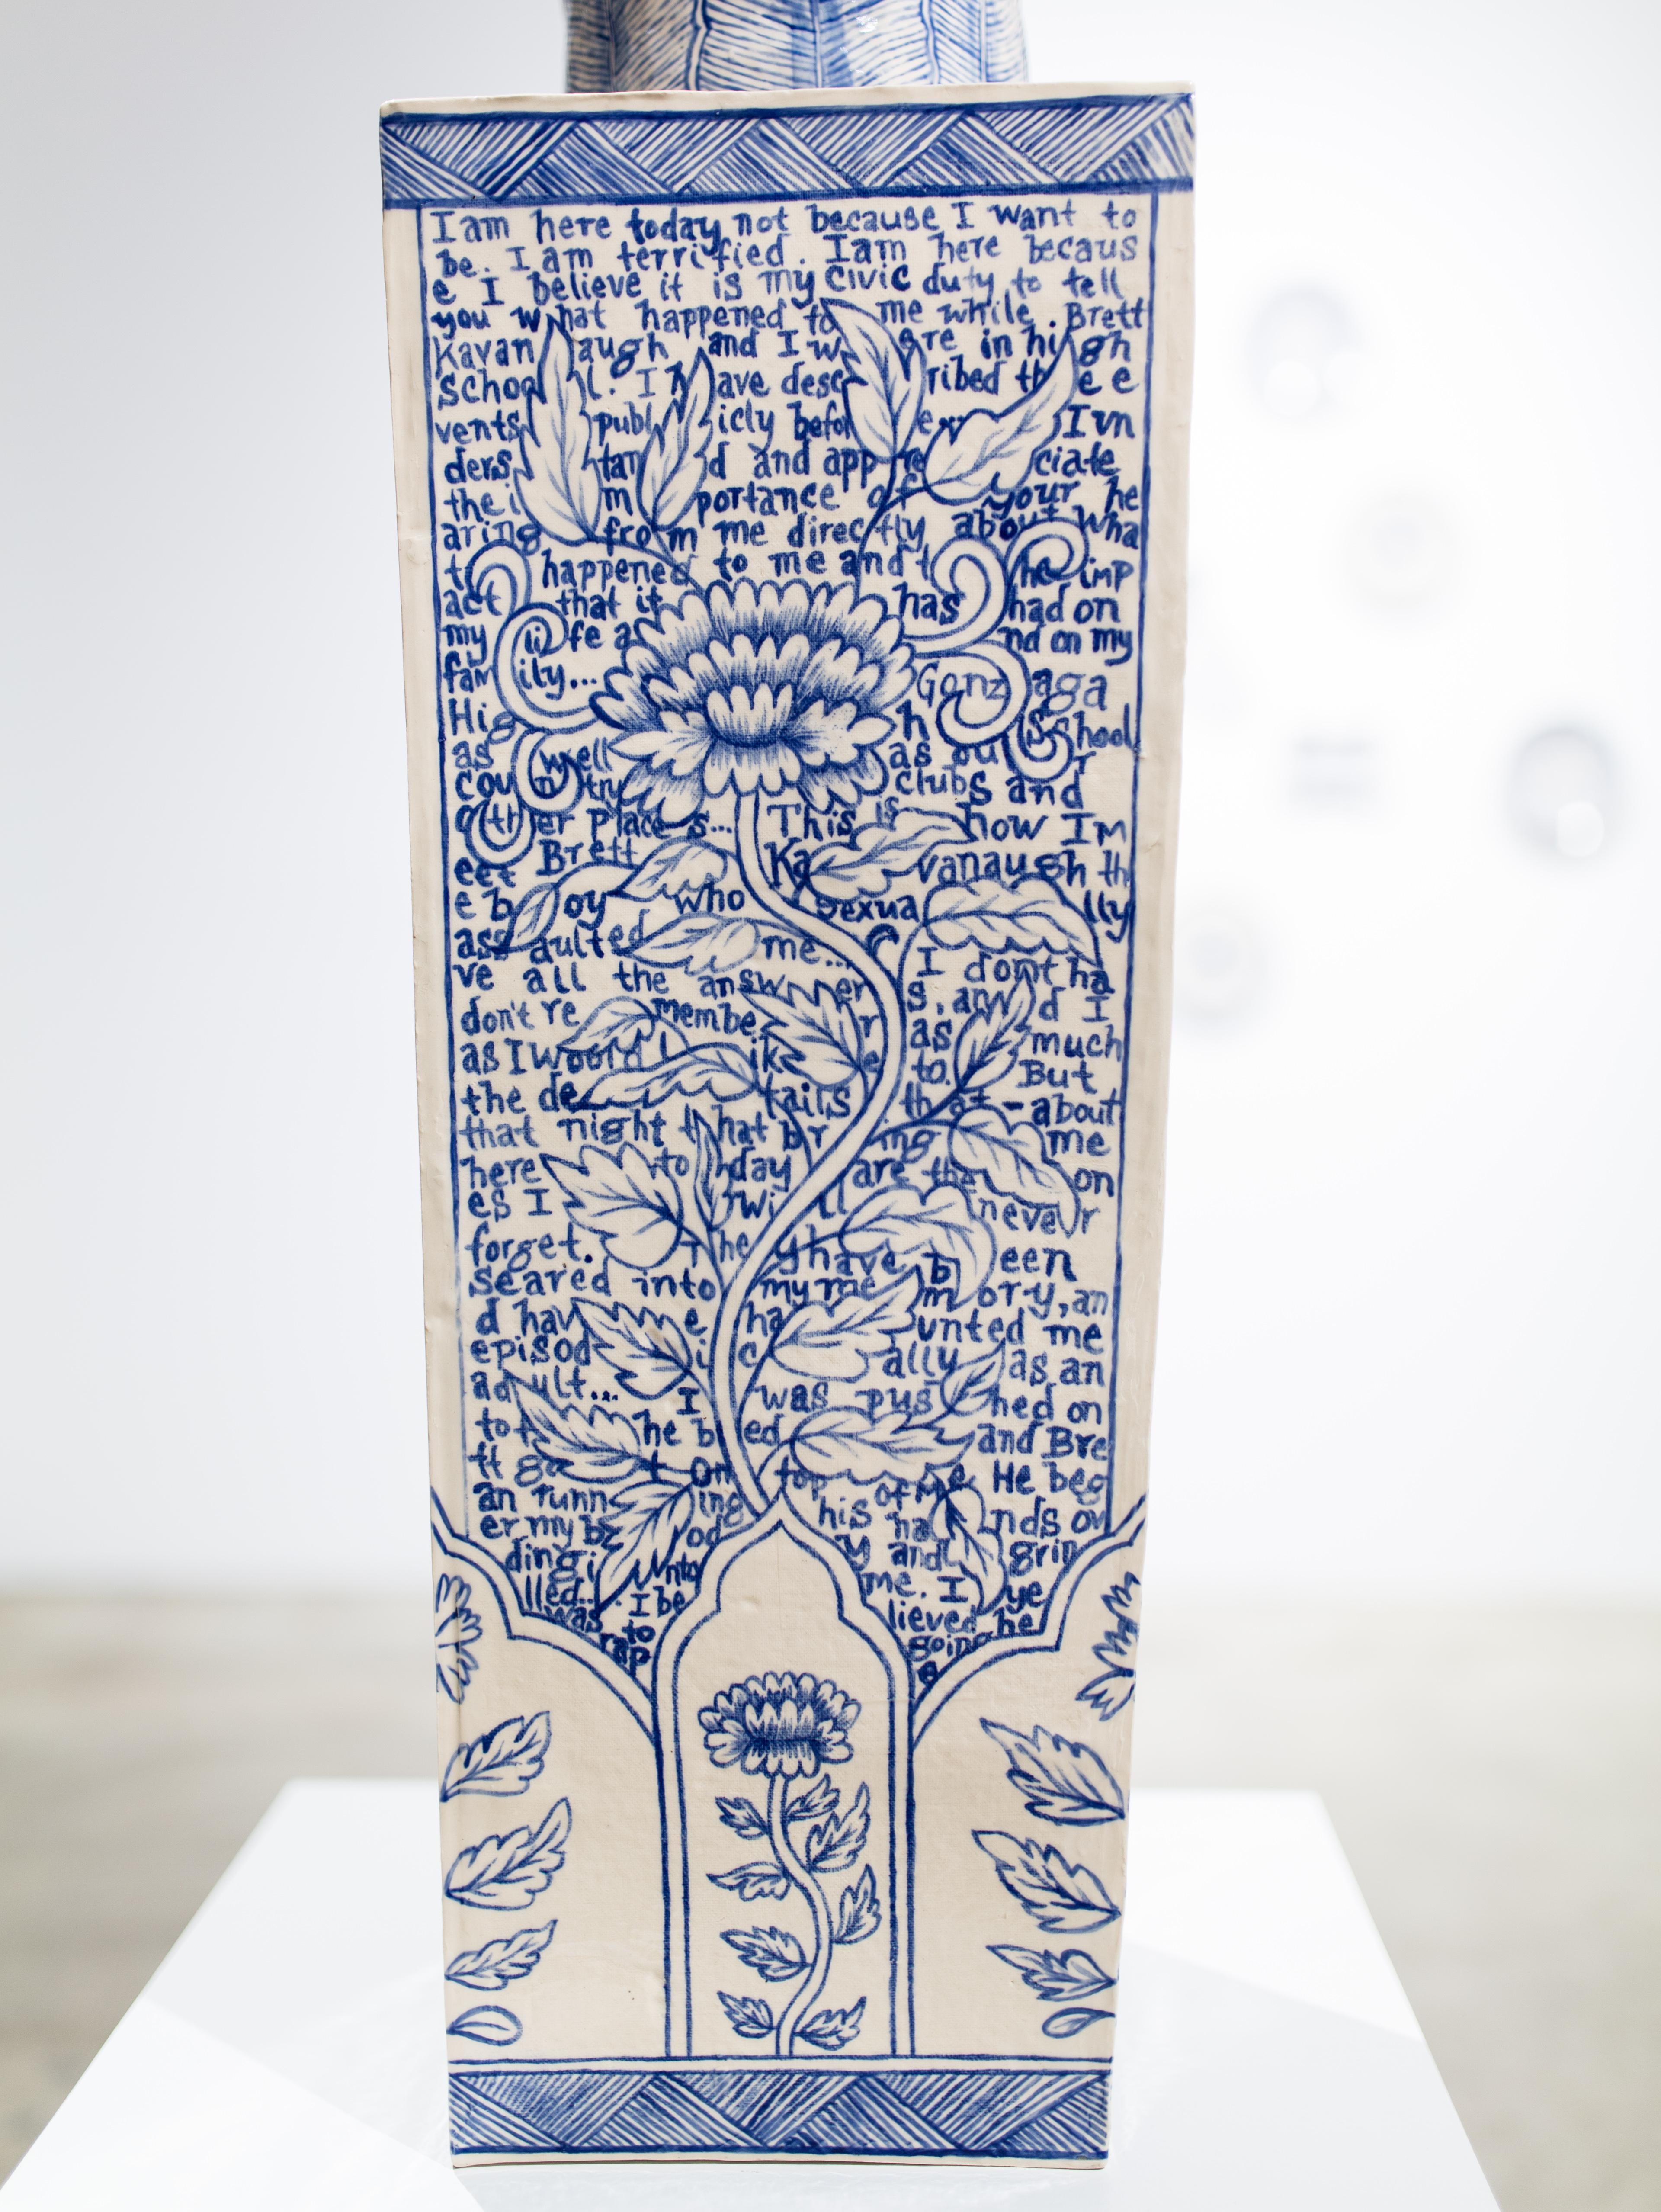 I am here today not because I want to
be. I am terrified. I am here becaus
e I believe it is my civic duty to tell
you what happened to me while Brett
Kavanaugh and I were in high
school. I have described the e
vents publicly before I un
derstand and appreciate
the importance of your he
aring from me directly about wha
t happened to me and the imp
act that it has had on
my life and on my
family... Gonzaga
High School
as well as our
country clubs and
other places... This is how I m
eet Brett Kavanaugh th
e boy who sexually
assaulted me... I don't ha
ve all the answers, and I
don't remember as much
as I woold like to. But
the details that - about
that night that bring me
here today are the on
es I will never
forget. They have been
seared into my memory, an
d have haunted me
episodically as an
adult... I was pushed on
to the bed and Bre
tt got on top of me. He beg
an running his hands ov
er my body and grin
ding into me. I ye
lled... I believed he
was going to
rape